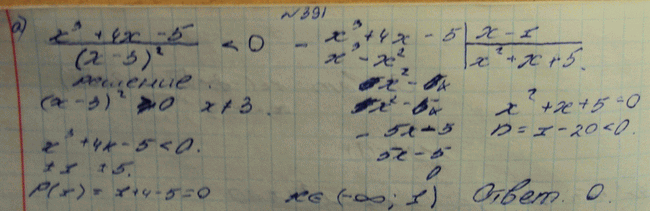 №391
а) x³ + 4x - 5 / (x - 3)² < 0
решение.
(x - 3)² > 0 x ≠ 3.
x³ + 4x - 5 < 0.
± 1 ± 5.
P(1) = 1 + 4 - 5 = 0
- x³ + 4x - 5 | x - 1
x³ - x² | x² + x + 5.
- 5x - 5
5x - 5
0
x² + x + 5 = 0
D = 1 - 20 < 0.
x ∈ (-∞; 1) Ответ. 0.